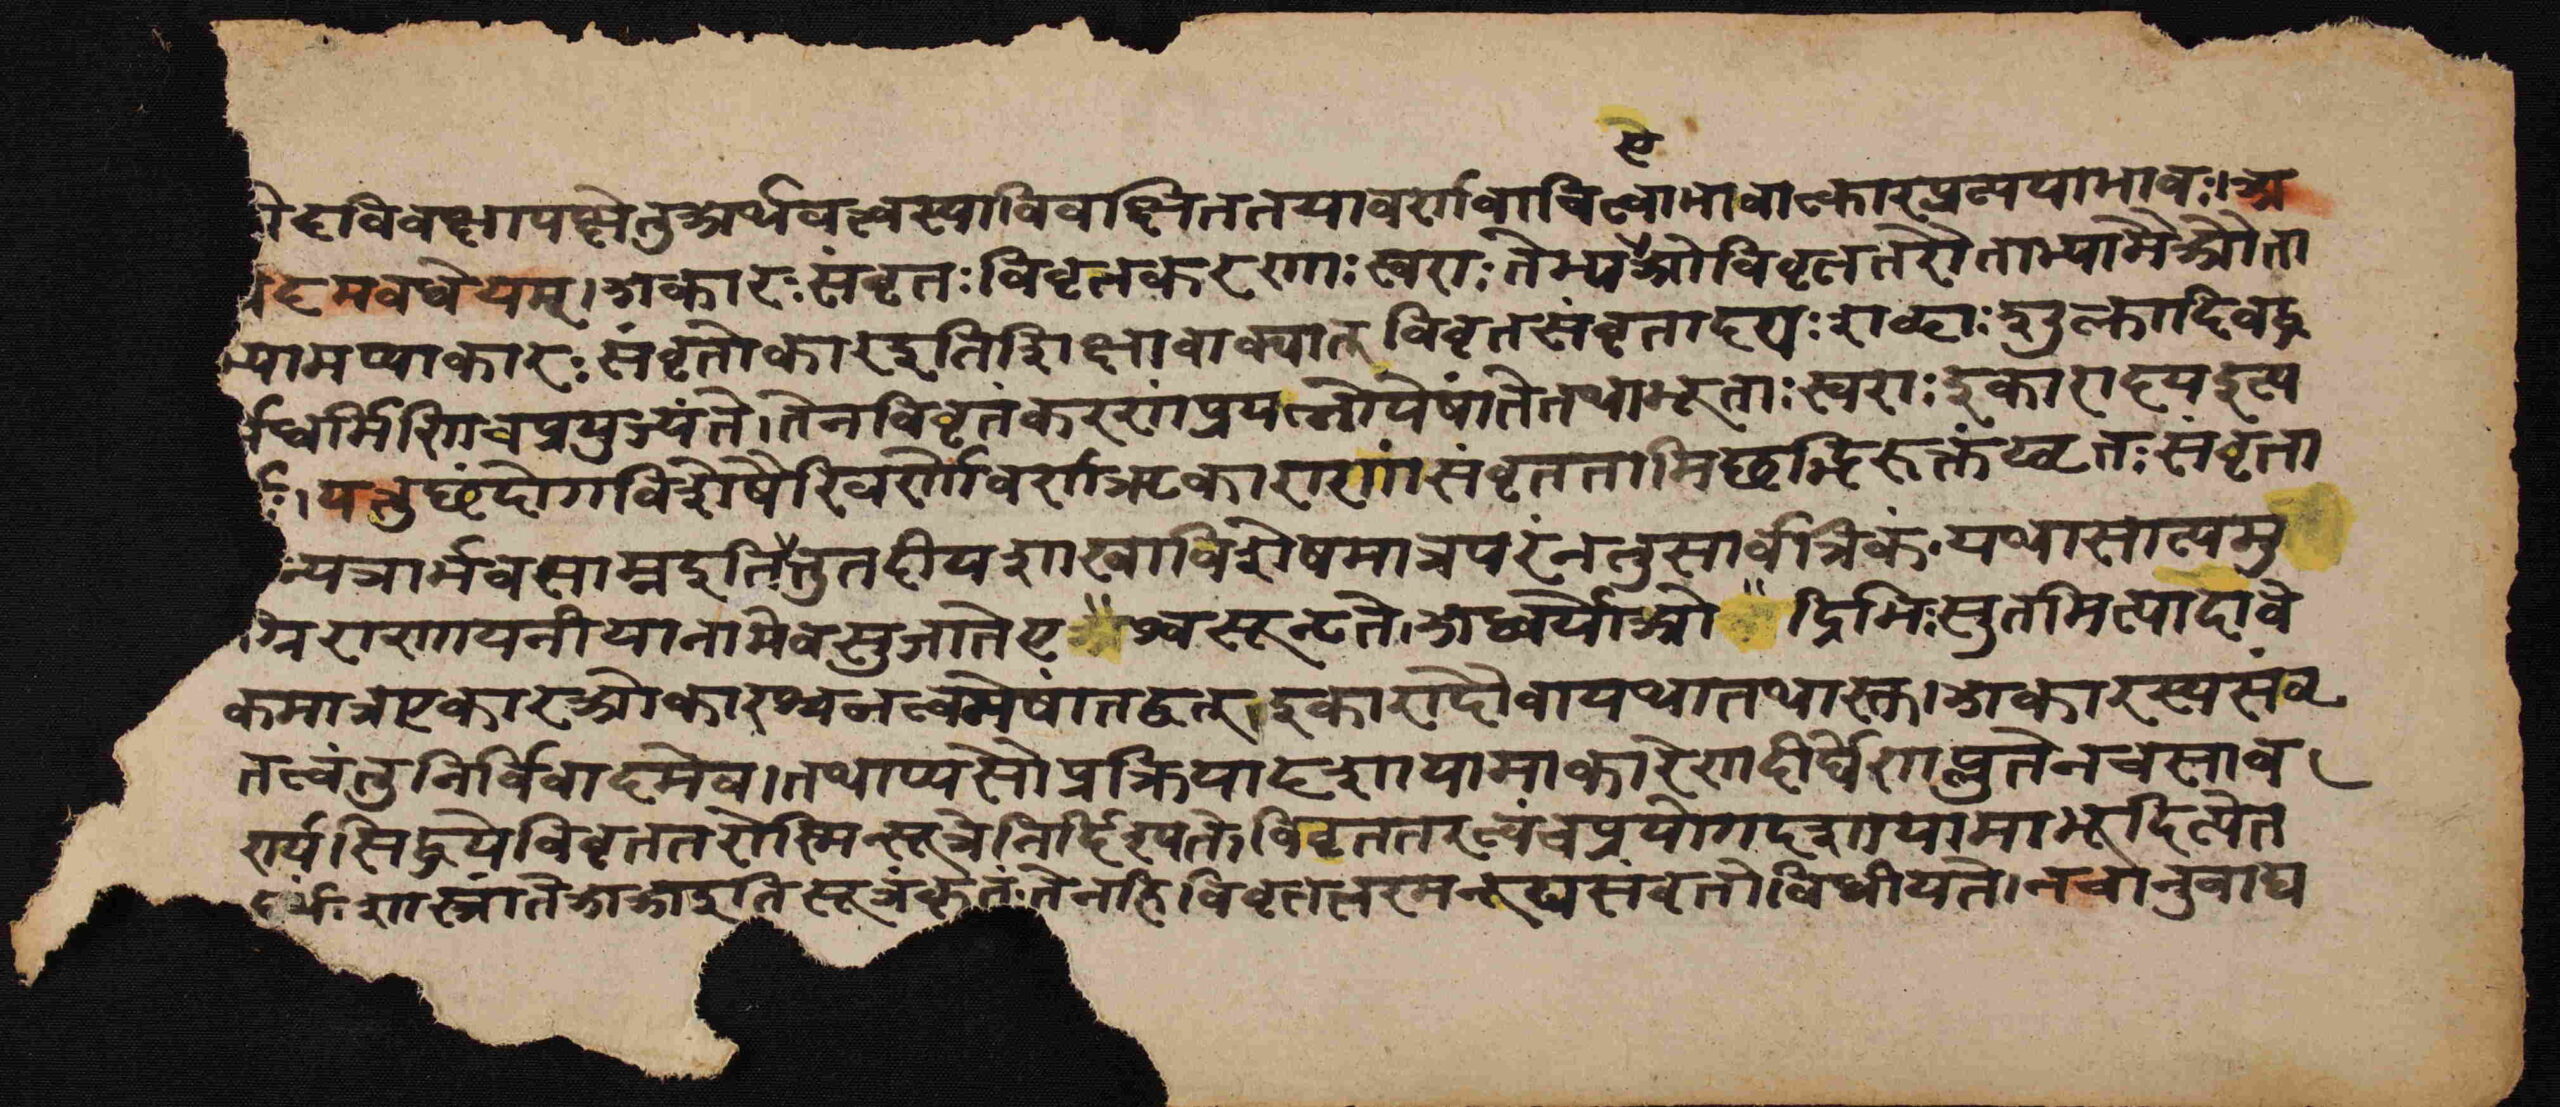 ए
ेदविवक्षापक्षेतुअर्थवत्वस्याविवक्षिततयावर्णावाचित्वाभावात्कारप्रत्ययाभावः।अ
ेदमवधेयम्।अकारःसंवृतःविवृतकरणाःस्वराःतेभ्यएओविवृततरौताभ्यामैऔता
भ्यामप्याकारःसंवृतोकारइतिशिक्षावाक्यात्विवृतसंवृतादयःशब्दाःशुक्लादिवद्ध
र्मधर्मिणिचप्रयुज्यंते।तेनविवृतंकरणंप्रयत्नोयेषांतेतथाभूताःस्वराःइकारादयइत्य
र्थः।यत्तुछंदोगविशेषैरिवर्णोवर्णऋकाराणांसंवृततामिछद्भिरुक्तंऋतःसंवृता
न्यत्रार्भवसाम्नइतितत्तुतदीयशाखाविशेषमात्रपरंनतुसार्वत्रिकं।यथासात्यमु
ग्रिराणायनीयानामेवसुजातेएश्वसूनृते।अध्वर्योओद्रिभिःसुतमित्यादावे
कमात्रएकारओकारश्चनत्वमेषांतद्वत्।इकारादौवायथातथास्तु।अकारस्यसंवृ
तत्वंतुनिर्विवादमेव।तथाप्यसौप्रक्रियादशायामाकारेणदीर्घेणप्लुतेनचसाव
र्ण्यसिद्धयेविवृततरोस्मिन्सूत्रेनिर्दिश्यते।विवृततरत्वंचप्रयोगदशायामाभूदित्येत
दर्थंशास्त्रांतेअअइतिसूत्रंकृतं।तेनहिविवृततरमनूद्यसंवृतोविधीयते।नचानुवाद्य